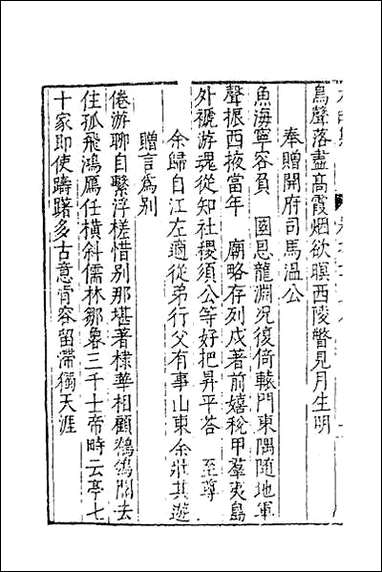 鳥聲落盡高霞烟欲暝西陵瞥見月生明
奉贈開府司馬溫公
魚海寧容負　國恩龍淵況復倚轅門東隅隨地軍
聲振西掖當年　廟略存列戍著前嬉稅甲羣夷島
外褫游魂從知社稷須公等好把昇平荅　至尊
余歸自江左適從弟行父有事山東余壯其遊
贈言爲別
倦游聊自繫浮槎惜別那堪著棣華相顧鶺鴒閒去
住孤飛鴻鴈任橫斜儒林鄒魯三千士帝時云亭七
十家卽使躊躇多古意肯容留滯獨天涯